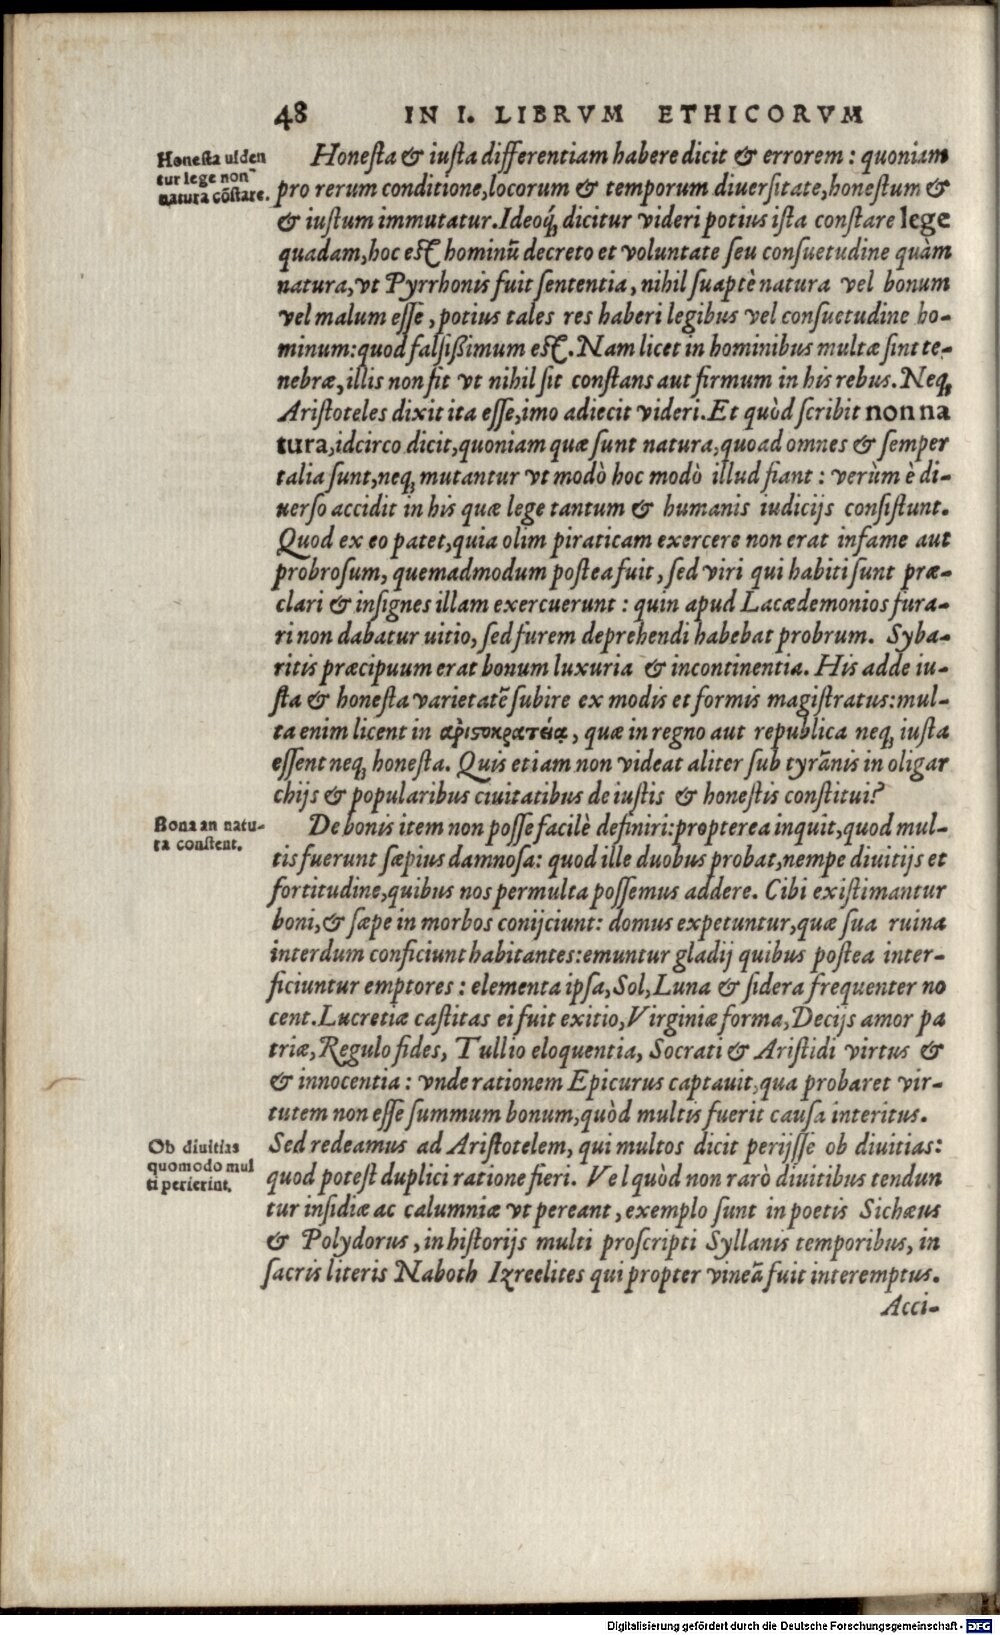 48 IN I. LIBRVM ETHICORVM
Honesta uiden
tur lege non
natura cõstare.
Honesta & iusta differentiam habere dicit & errorem: quoniam
pro rerum conditione, locorum & temporum diuersitate, honestum &
& iustum immutatur. Ideoq́; dicitur videri potius ista constare lege
quadam, hoc est hominũ decreto et voluntate seu consuetudine quàm
natura, vt Pyrrhonis fuit sententia, nihil suaptè natura vel bonum
vel malum esse, potius tales res haberi legibus vel consuetudine ho-
minum: quod falsißimum est. Nam licet in hominibus multæ sint te-
nebræ, illis non fit vt nihil sit constans aut firmum in his rebus. Neq;
Aristoteles dixit ita esse, imo adiecit videri. Et quòd scribit non na
tura, idcirco dicit, quoniam quæ sunt natura, quoad omnes & semper
talia sunt, neq; mutantur vt modò hoc modò illud fiant: verùm è di-
uerso accidit in his quæ lege tantum & humanis iudicijs consistunt.
Quod ex eo patet, quia olim piraticam exercere non erat infame aut
probrosum, quemadmodum postea fuit, sed viri qui habiti sunt præ-
clari & insignes illam exercuerunt: quin apud Lacædemonios fura-
ri non dabatur uitio, sed furem deprehendi habebat probrum. Syba-
ritis præcipuum erat bonum luxuria & incontinentia. His adde iu-
sta & honesta varietatẽ subire ex modis et formis magistratus: mul-
ta enim licent in ἀριστοκρατείᾳ, quæ in regno aut republica neq; iusta
essent neq; honesta. Quis etiam non videat aliter sub tyrãnis in oligar
chijs & popularibus ciuitatibus de iustis & honestis constitui?
Bona an natu-
ra constent.
De bonis item non posse facilè definiri: propterea inquit, quod mul-
tis fuerunt sæpius damnosa: quod ille duobus probat, nempe diuitijs et
fortitudine, quibus nos permulta possemus addere. Cibi existimantur
boni, & sæpe in morbos conijciunt: domus expetuntur, quæ sua ruina
interdum conficiunt habitantes: emuntur gladij quibus postea inter-
ficiuntur emptores: elementa ipsa, Sol, Luna & sidera frequenter no
cent. Lucretiæ castitas ei fuit exitio, Virginiæ forma, Decijs amor pa
triæ, Regulo fides, Tullio eloquentia, Socrati & Aristidi virtus &
& innocentia: vnde rationem Epicurus captauit, qua probaret vir-
tutem non esse summum bonum, quòd multis fuerit causa interitus.
Ob diuitias
quomodo mul
ti perierint.
Sed redeamus ad Aristotelem, qui multos dicit perijsse ob diuitias:
quod potest duplici ratione fieri. Vel quòd non rarò diuitibus tendun
tur insidiæ ac calumniæ vt pereant, exemplo sunt in poetis Sichæus
& Polydorus, in historijs multi proscripti Syllanis temporibus, in
sacris literis Naboth Izreelites qui propter vineã fuit interemptus.
Acci-
Digitalisierung gefördert durch die Deutsche Forschungsgemeinschaft - DFG